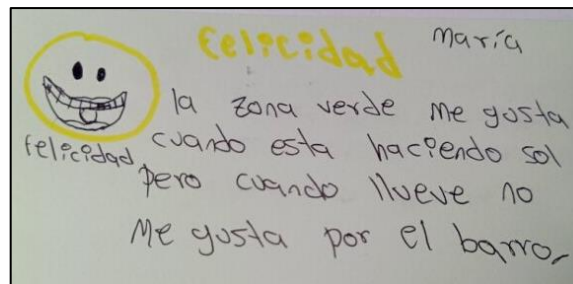 felicidad
María
la zona verde me gusta
felicidad
cuando esta haciendo sol
pero cuando llueve no
Me gusta por el barro,